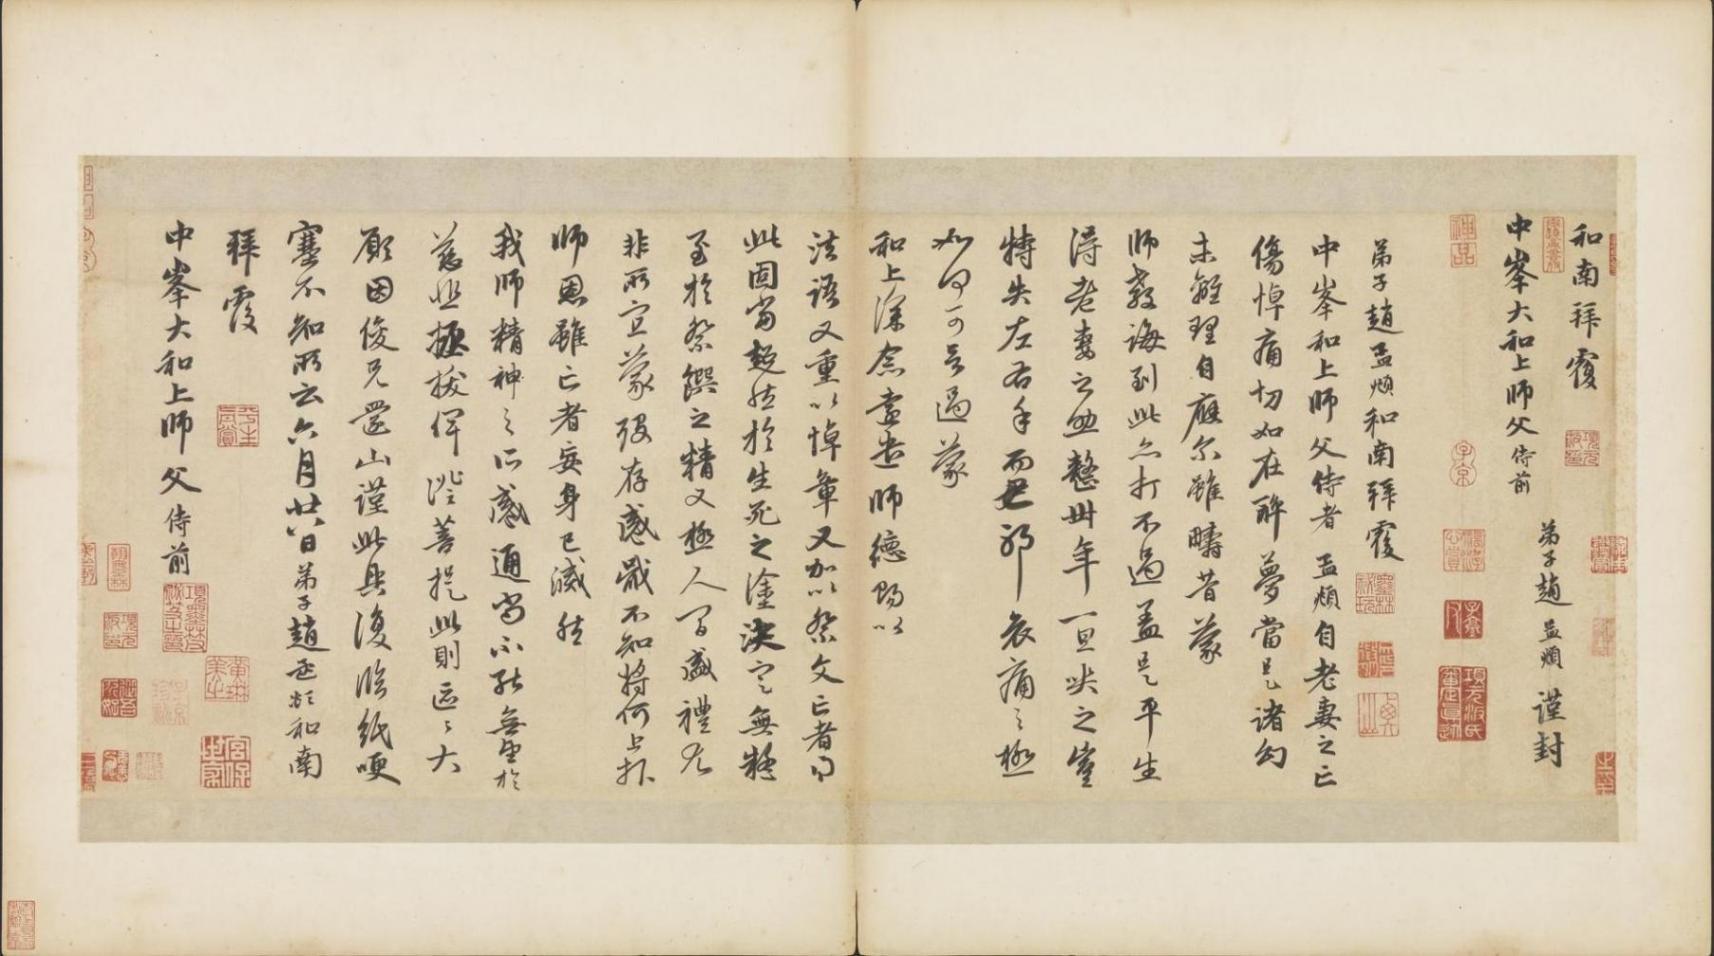 和南拜覆
中峯大和上師父侍前
弟子趙孟頫謹封
弟子趙孟頫和南拜覆
中峯和上師父侍者孟頫自老妻之亡
傷悼痛切如在醉夢當是諸幻
未離理自應尔雖疇昔蒙
師教誨到此亦打不過蓋是平生
得老妻之助整卅年一旦哭之豈
特失左右手而已耶哀痛之極
如何可言過蒙
和上深念遠遣師德賜以
法語又重以悼章又加以祭文亡者得
此固當超然於生死之塗決定無疑
至於祭饌之精又極人間盛禮尤
非所宜蒙殁存感戴不知將何上報
師恩雖亡者妄身已滅然
我師精神之所感通尚不能無望於
慈悲拯拔俾證菩提此則區區大
願因俊兄還山謹此具復臨紙哽
塞不知所云六月廿八日弟子趙孟頫和南
拜覆
中峯大和上師父侍前
神品
子京